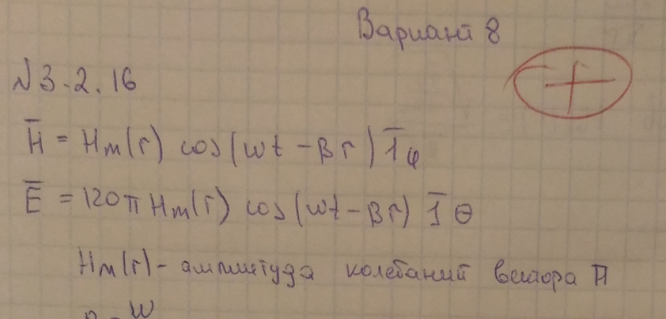 Вариант 8
№3.2.16
H̅ = Hm(r) cos(wt - βr) 1̅φ
E̅ = 120π Hm(r) cos(wt - βr) 1̅θ
Hm(r) - амплитуда колебаний вектора H̅